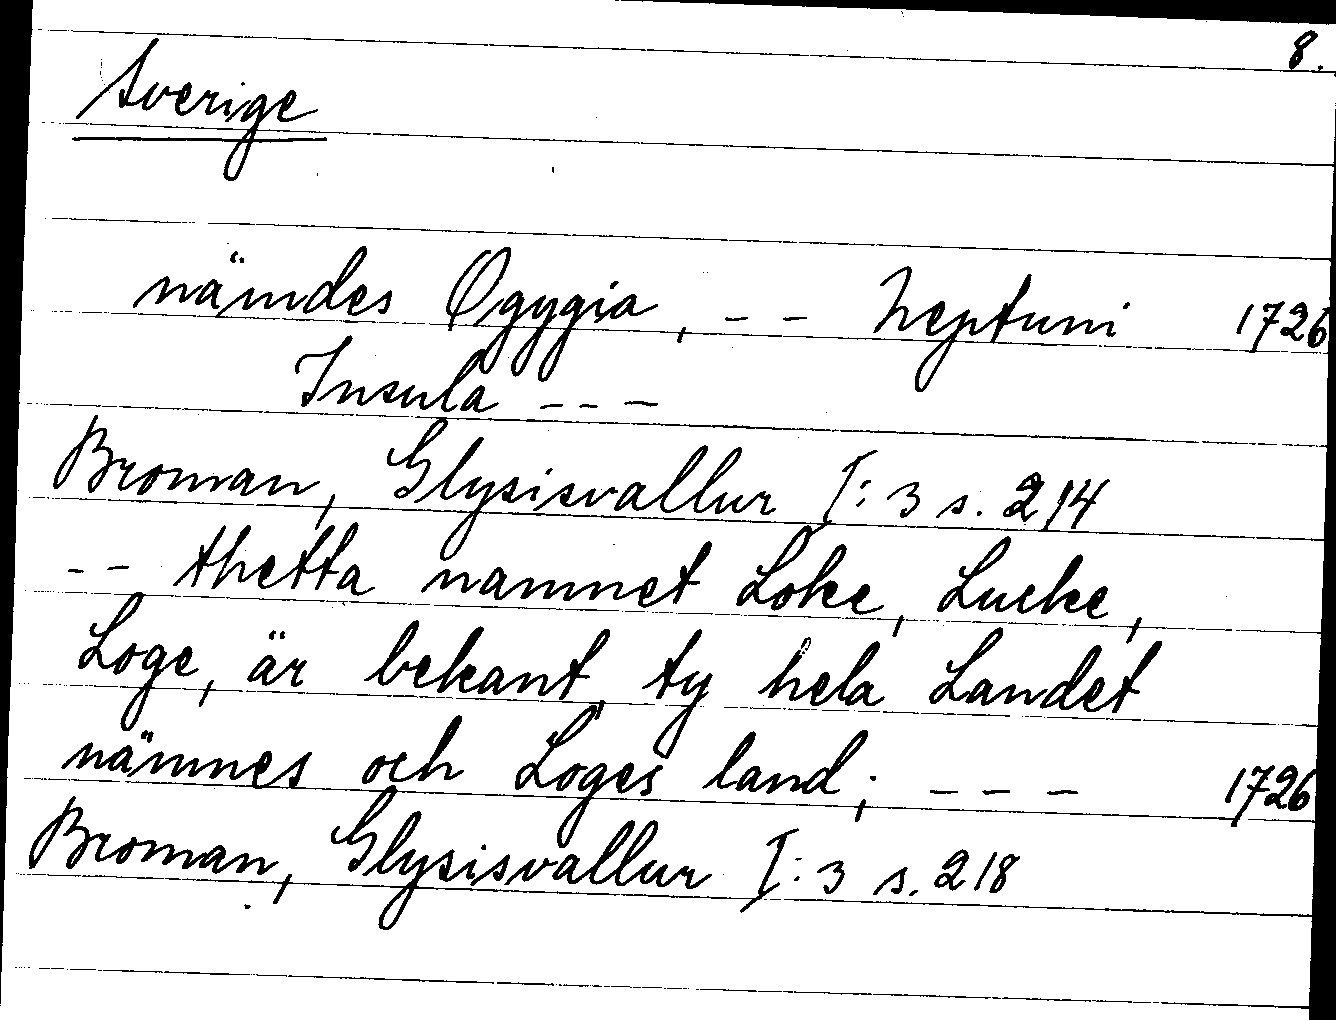 8.
Sverige
nämdes Ogygia, - - Neptuni 1726
Insula - - -
Broman, Glysisvallur I: 3 s. 214
- - thetta namnet Loke, Lucke,
Loge, är bekant, ty hela Landet
nämnes och Loges land; - - - 1726
Broman, Glysisvallur I: 3 s. 218